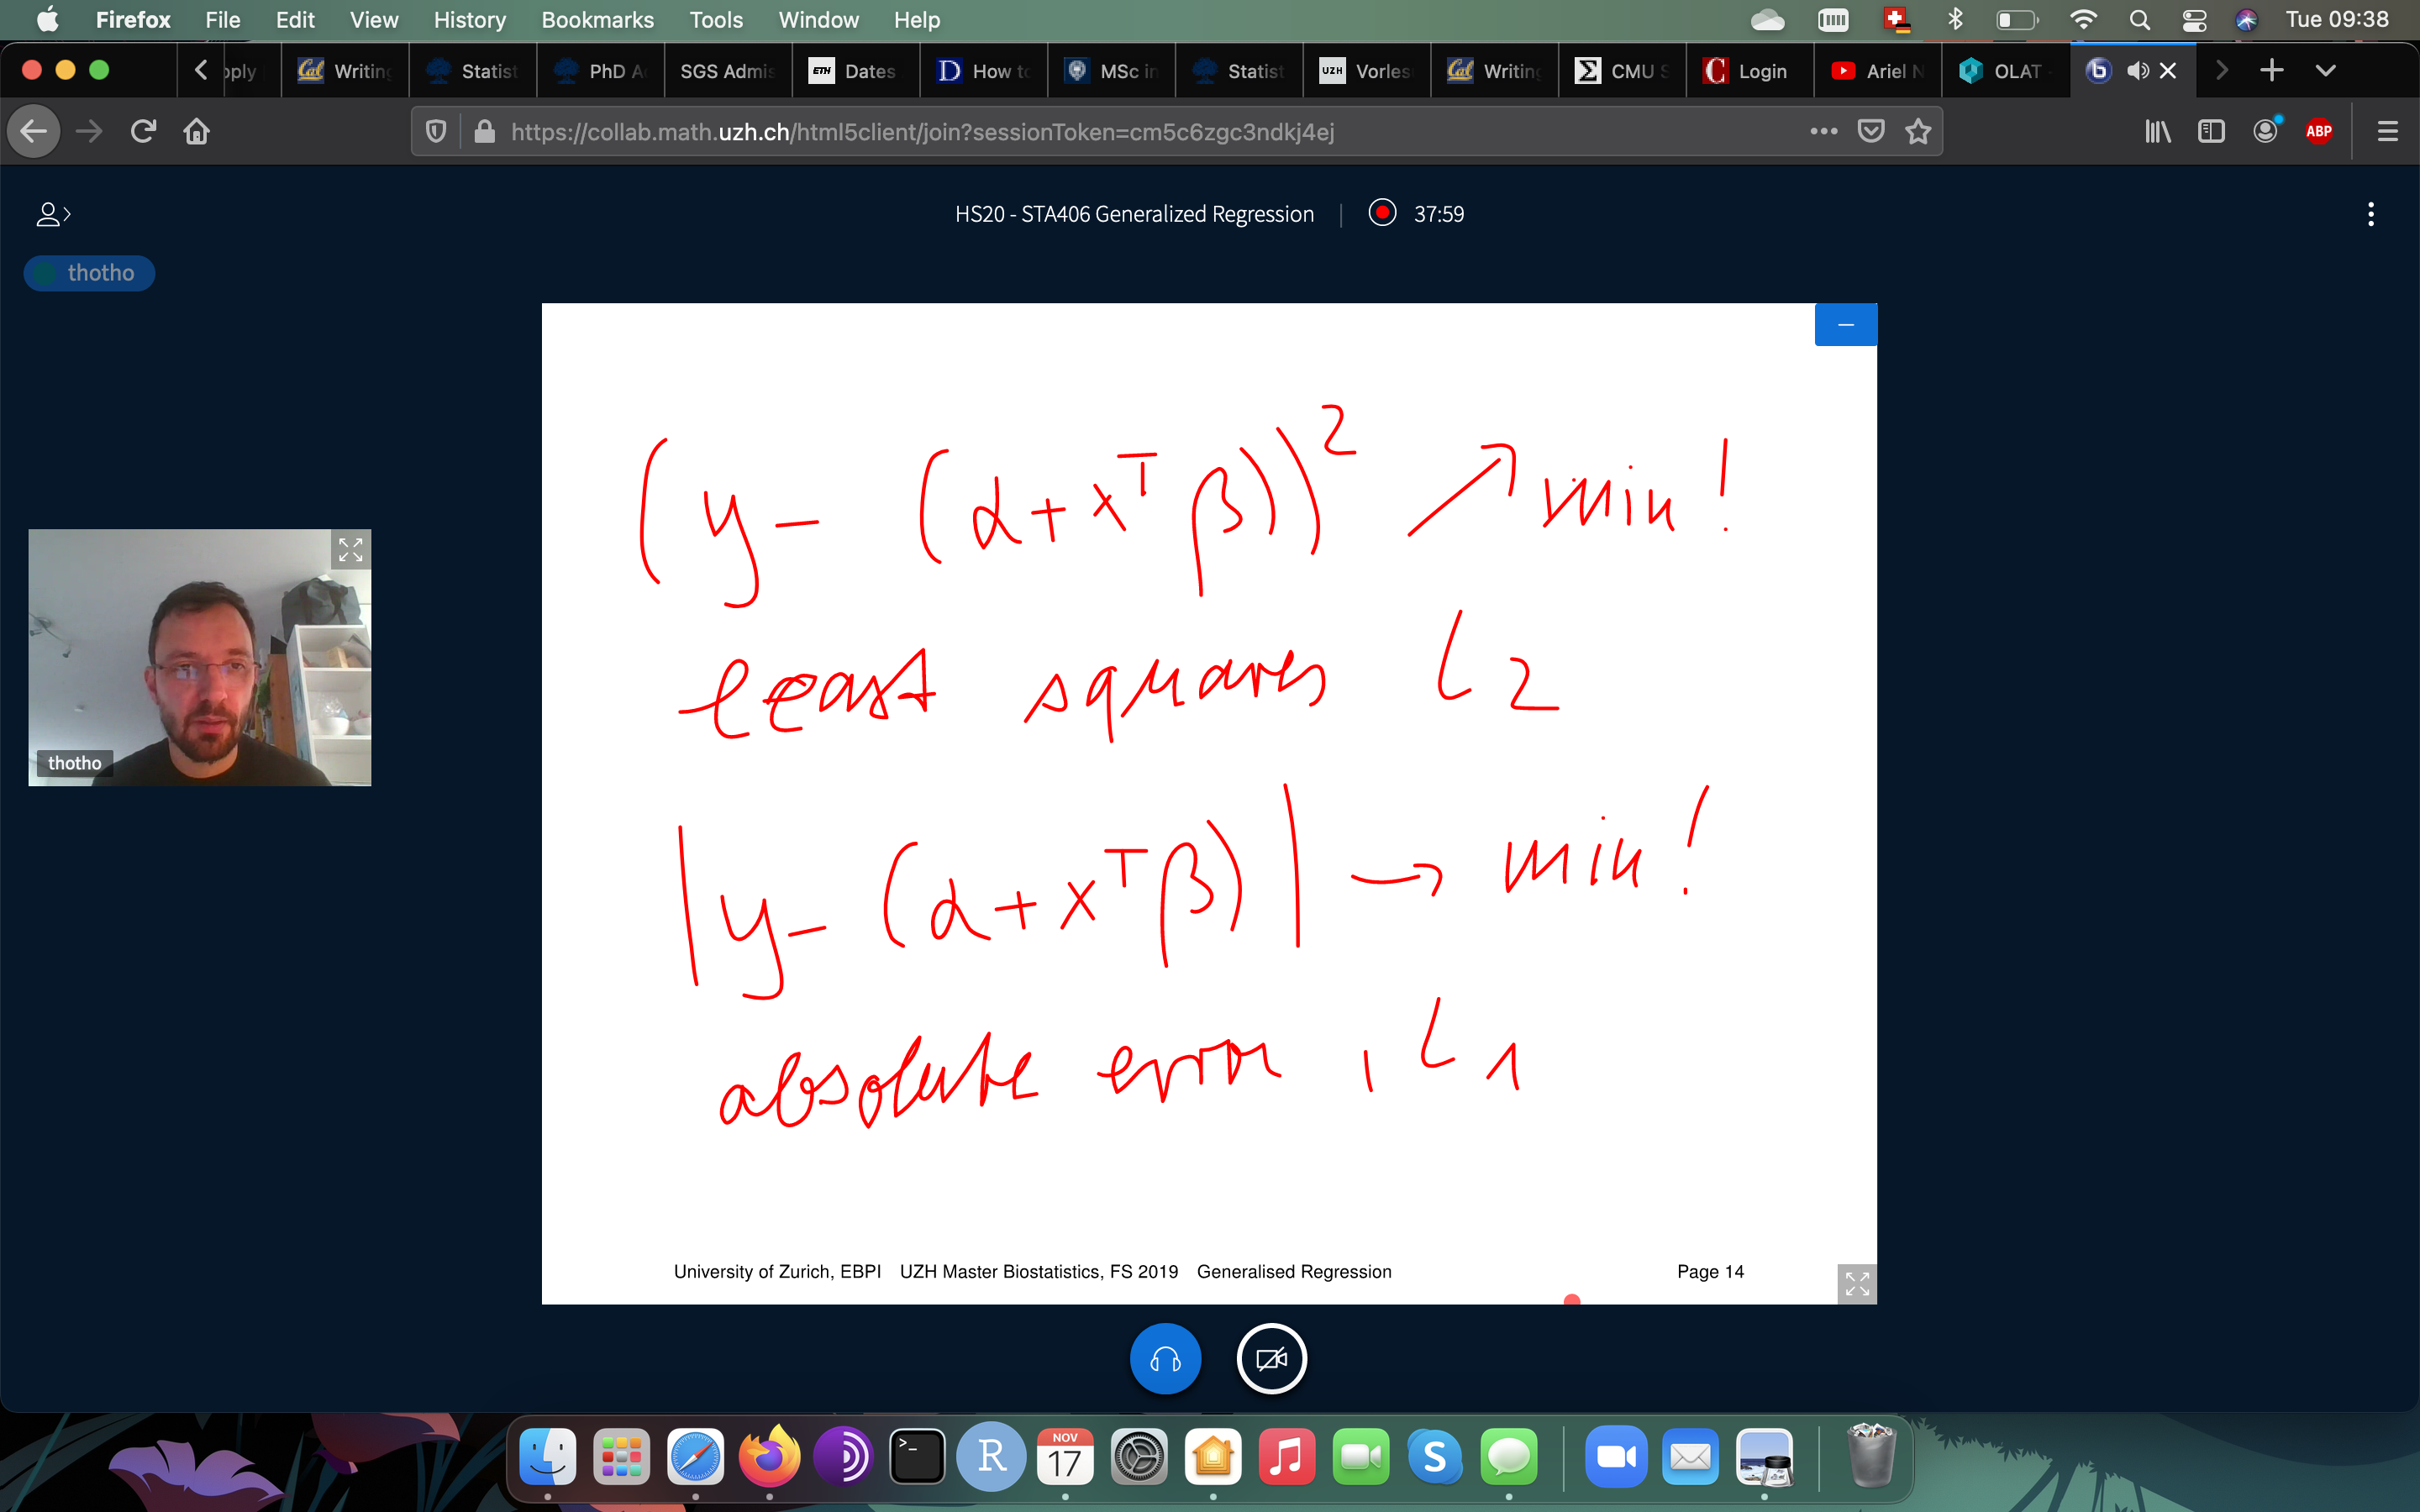 Firefox File Edit View History Bookmarks Tools Window Help Tue 09:38
pply Writing Statist PhD A SGS Admis ETH Dates D How to MSc in Statist UZH Vorles Cal Writing Σ CMU S C Login Ariel N OLAT
https://collab.math.uzh.ch/html5client/join?sessionToken=cm5c6zgc3ndkj4ej ABP
HS20 - STA406 Generalized Regression | 37:59
thotho
(y - (α + x^T β))^2 ↗ min!
least squares L2
thotho
|y - (α + x^T β)| → min!
absolute error, L1
University of Zurich, EBPI UZH Master Biostatistics, FS 2019 Generalised Regression Page 14
>_ R NOV 17 S